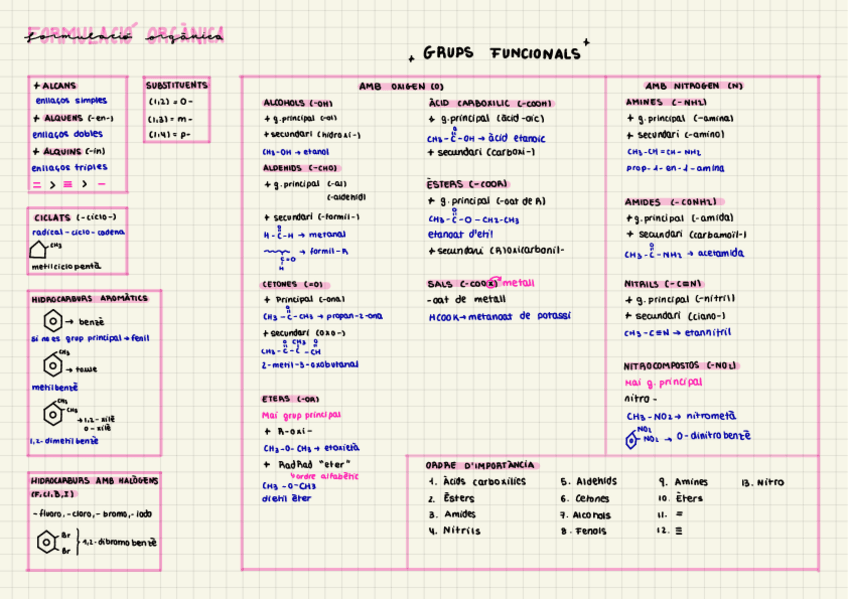 FORMULACIÓ ORGÀNICA
formulació orgànica
GRUPS FUNCIONALS
+ ALCANS
enllaços simples
+ ALQUENS (-en-)
enllaços dobles
+ ALQUINS (-in)
enllaços triples
= > ≡ > -
SUBSTITUENTS
(1,2) = o-
(1,3) = m-
(1,4) = p-
CICLATS (-ciclo-)
radical-ciclo-cadena
CH3
metilciclopentà
HIDROCARBURS AROMÀTICS
→ benzè
si no es grup principal → fenil
CH3
→ toluè
metilbenzè
CH3
CH3
→ 1,2-xilè
o-xilè
1,2-dimetilbenzè
HIDROCARBURS AMB HALÒGENS
(F,Cl,B,I)
-fluoro,-cloro,-bromo,-iodo
Br
Br
1,2-dibromobenzè
AMB OXIGEN (O)
ALCOHOLS (-OH)
+ g.principal (-ol)
+ secundari (hidroxi-)
CH3-OH → etanol
ALDEHIDS (-CHO)
+ g.principal (-al)
(-aldehid)
+ secundari (-formil-)
O
H-C-H → metanal
→ formil-R
C=O
H
CETONES (=O)
+ Principal (-ona)
O
CH3-C-CH3 → propan-2-ona
+ secundari (oxo-)
O CH3 O
CH3-C-C-CH
2-metil-3-oxobutanal
ETERS (-OR)
Mai grup principal
+ R-oxi-
CH3-O-CH3 → etoxietà
+ RadRad "eter"
ordre alfabètic
CH3-O-CH3
dietil èter
ÀCID CARBOXILIC (-COOH)
+ g.principal (àcid -oic)
O
CH3-C-OH → àcid etanoic
+ secundari (carboxi-)
ÈSTERS (-COOR)
+ g.principal (-oat de R)
O
CH3-C-O-CH2-CH3
etanoat d'etil
+ secundari (R)oxicarbonil-
SALS (-COOX) metall
-oat de metall
HCOOK → metanoat de potassi
AMB NITROGEN (N)
AMINES (-NH2)
+ g.principal (-amina)
+ secundari (-amino)
CH3-CH=CH-NH2
prop-1-en-1-amina
AMIDES (-CONH2)
+g.principal (-amida)
+ secundari (carbamoil-)
O
CH3-C-NH2 → acetamida
NITRILS (-C≡N)
+ g.principal (-nitril)
+ secundari (ciano-)
CH3-C≡N → etannitril
NITROCOMPOSTOS (-NO2)
Mai g. principal
nitro-
CH3-NO2 → nitrometà
NO2
NO2 → O-dinitrobenzè
ORDRE D'IMPORTÀNCIA
1. Àcids carboxilics
2. Èsters
3. Amides
4. Nitrils
5. Aldehids
6. Cetones
7. Alcohols
8. Fenols
9. Amines
10. Èters
11. =
12. ≡
13. Nitro